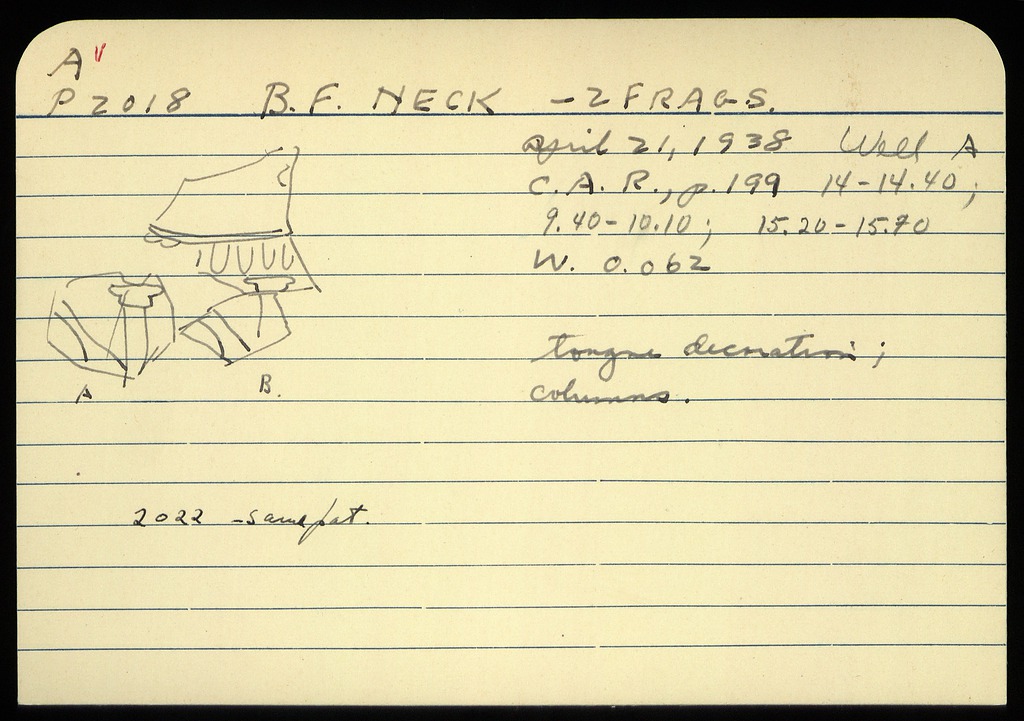 A v
P 2018 B.F. NECK - 2 FRAGS.
April 21, 1938 Well A
C. A. R., p. 199 14-14.40;
9.40-10.10; 15.20-15.70
W. 0.062
tongue decoration;
columns.
A B.
2022 - same pat.